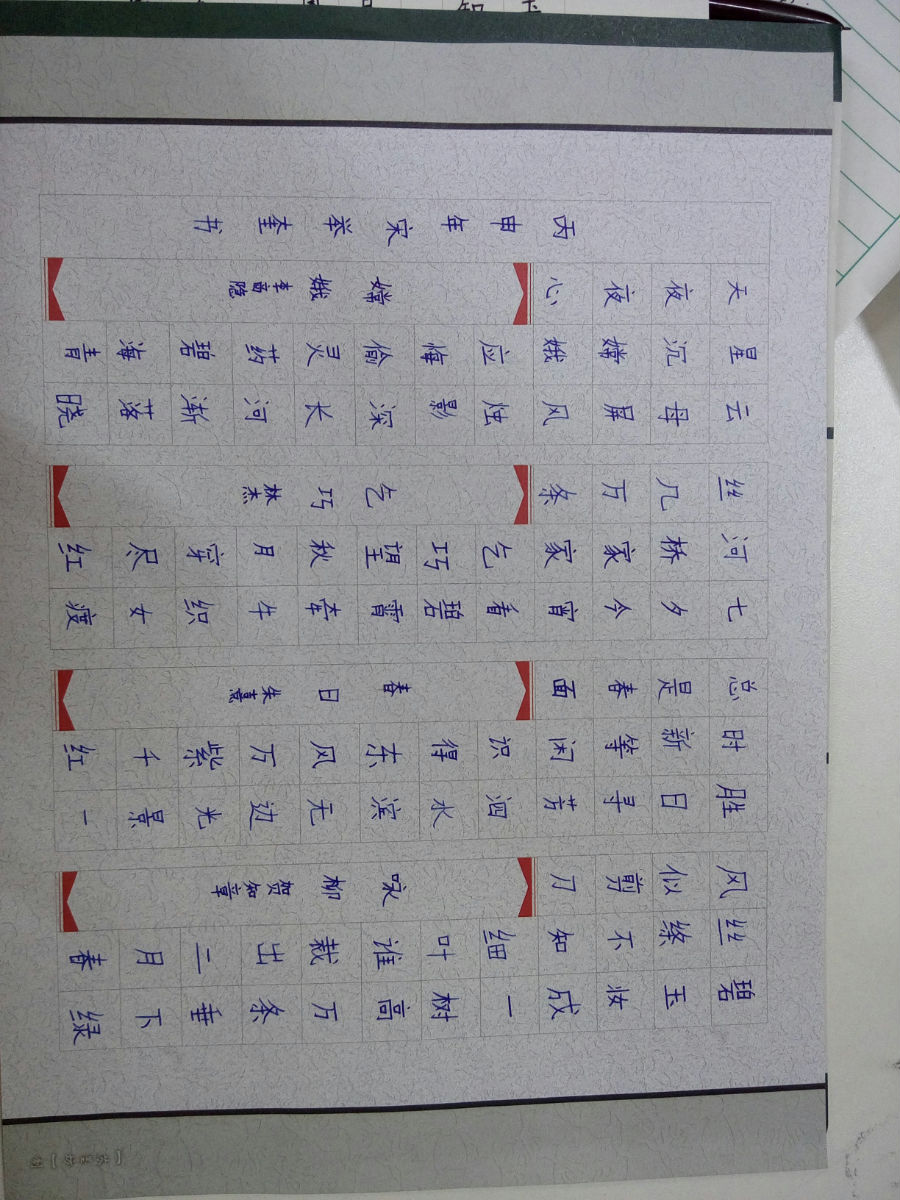 碧玉妆成一树高万条垂下绿
丝绦不知细叶谁裁出二月春
风似剪刀 咏柳 贺知章
胜日寻芳泗水滨无边光景一
时新等闲识得东风万紫千红
总是春面 春日 朱熹
七夕今宵看碧霄牵牛织女度
河桥家家乞巧望秋月穿尽红
丝几万条 乞巧 林杰
云母屏风烛影深长河渐落晓
星沉嫦娥应悔偷灵药碧海青
天夜夜心 嫦娥 李商隐
丙申年宋举奎书